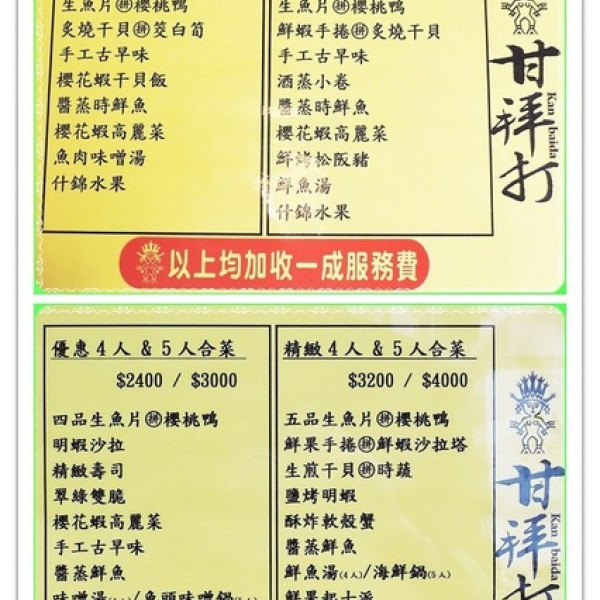 生魚片拼櫻桃鴨
炙燒干貝拼筊白筍
手工古早味
櫻花蝦干貝飯
醬蒸時鮮魚
櫻花蝦高麗菜
魚肉味噌湯
什錦水果
生魚片拼櫻桃鴨
鮮蝦手捲拼炙燒干貝
手工古早味
酒蒸小卷
醬蒸時鮮魚
櫻花蝦高麗菜
鮮烤松阪豬
鮮魚湯
什錦水果
甘拜打
Kan baida
以上均加收一成服務費
優惠4人 & 5人合菜
$2400 / $3000
四品生魚片拼櫻桃鴨
明蝦沙拉
精緻壽司
翠綠雙脆
櫻花蝦高麗菜
手工古早味
醬蒸鮮魚
味噌湯(4人)/魚頭味噌鍋(5人)
精緻4人 & 5人合菜
$3200 / $4000
五品生魚片拼櫻桃鴨
鮮果手捲拼鮮蝦沙拉塔
生煎干貝拼時蔬
鹽烤明蝦
酥炸軟殼蟹
醬蒸鮮魚
鮮魚湯(4人)/海鮮鍋(5人)
鮮果起士派
甘拜打
Kan baida